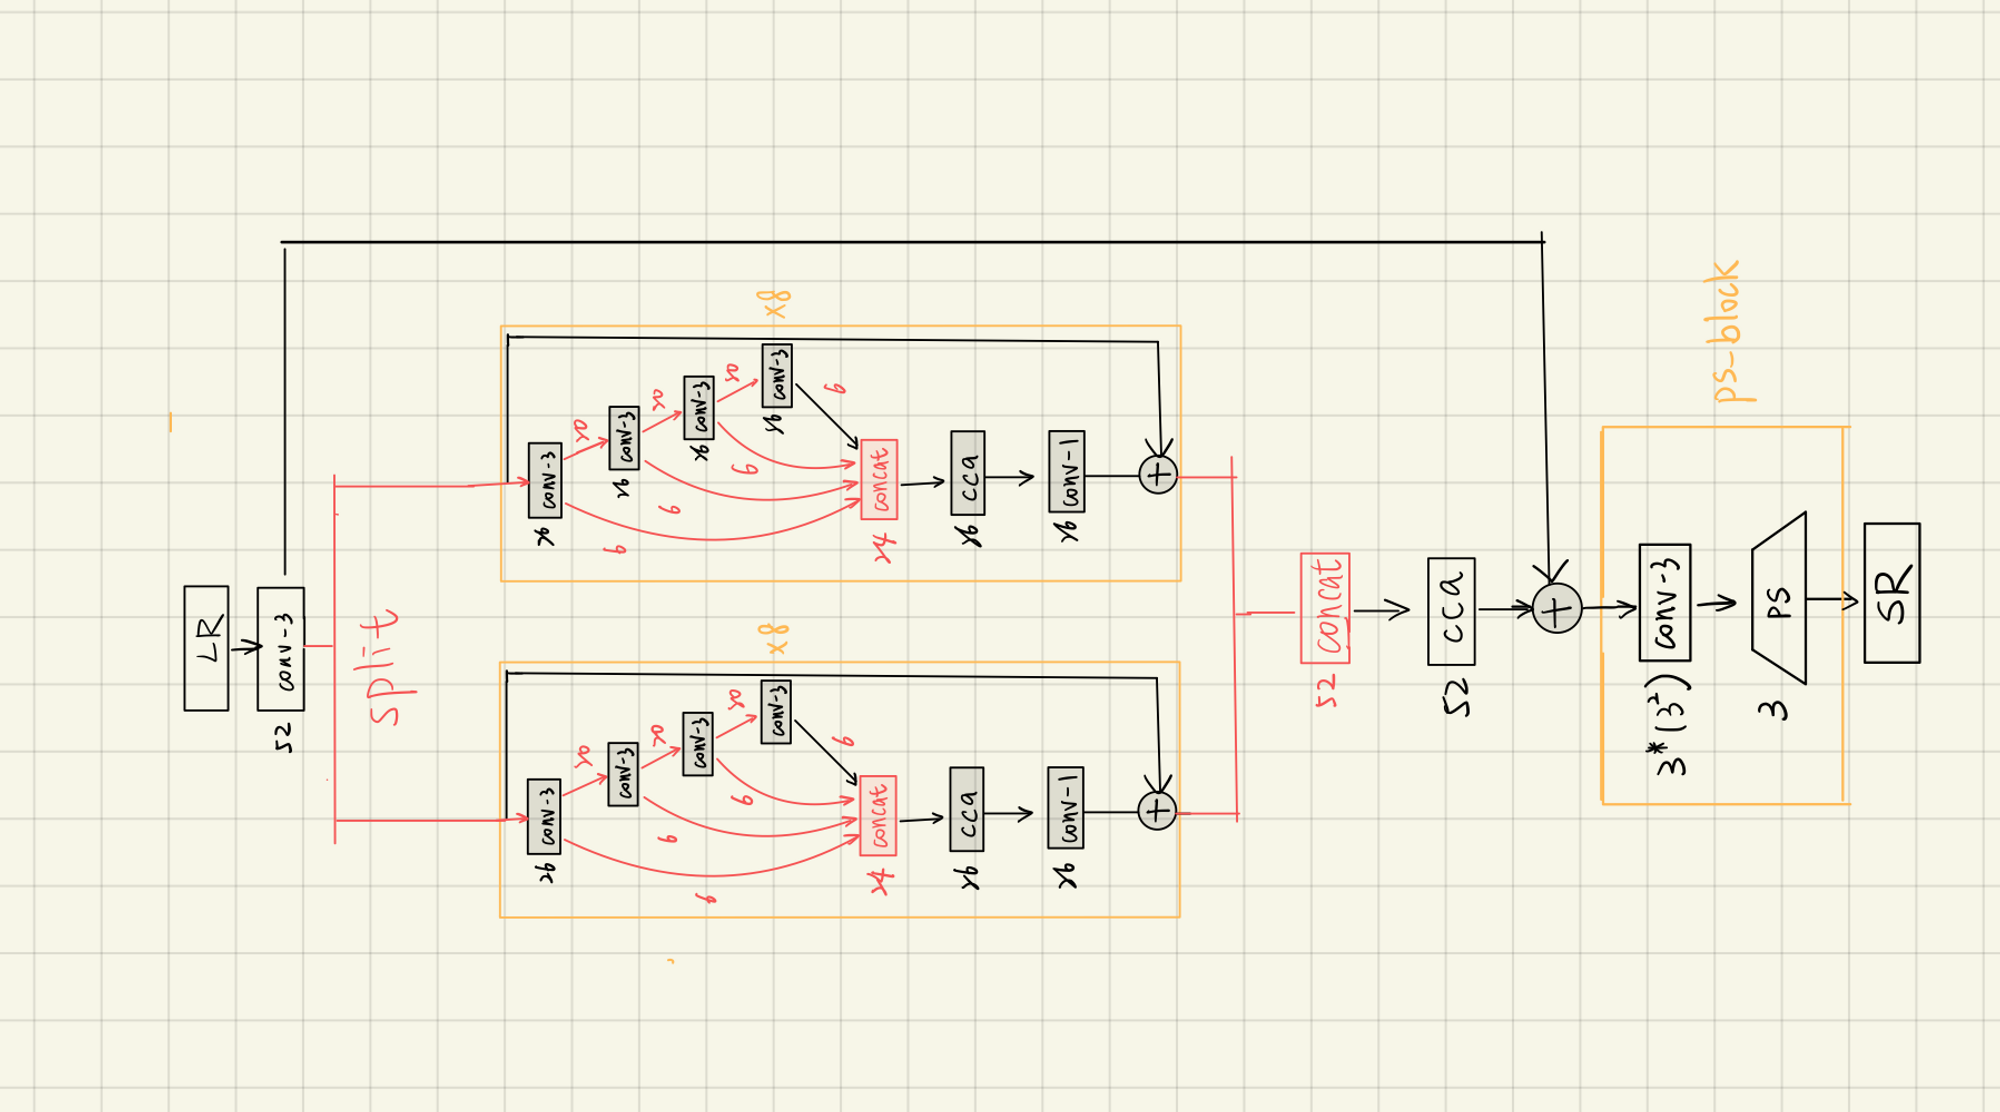 LR
conv-3
52
split
x8
conv-3
26
20
6
conv-3
26
20
6
conv-3
26
20
6
conv-3
26
6
concat
24
cca
26
conv-1
26
+
x8
conv-3
26
20
6
conv-3
20
6
conv-3
20
6
conv-3
6
concat
24
cca
26
conv-1
26
+
concat
52
cca
52
+
ps-block
conv-3
3*(3²)
PS
3
SR